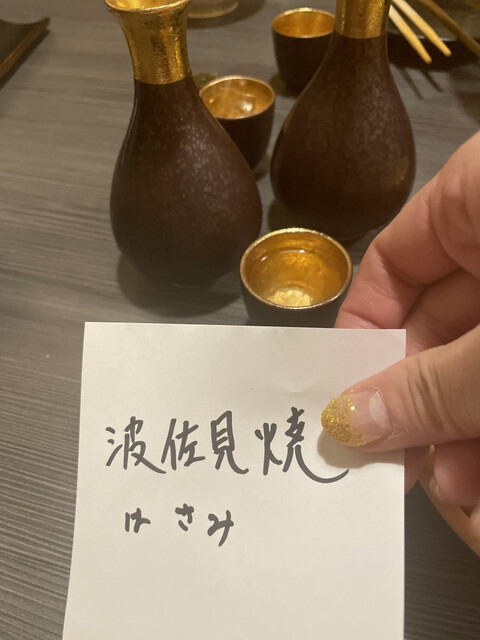 波佐見焼
はさみ